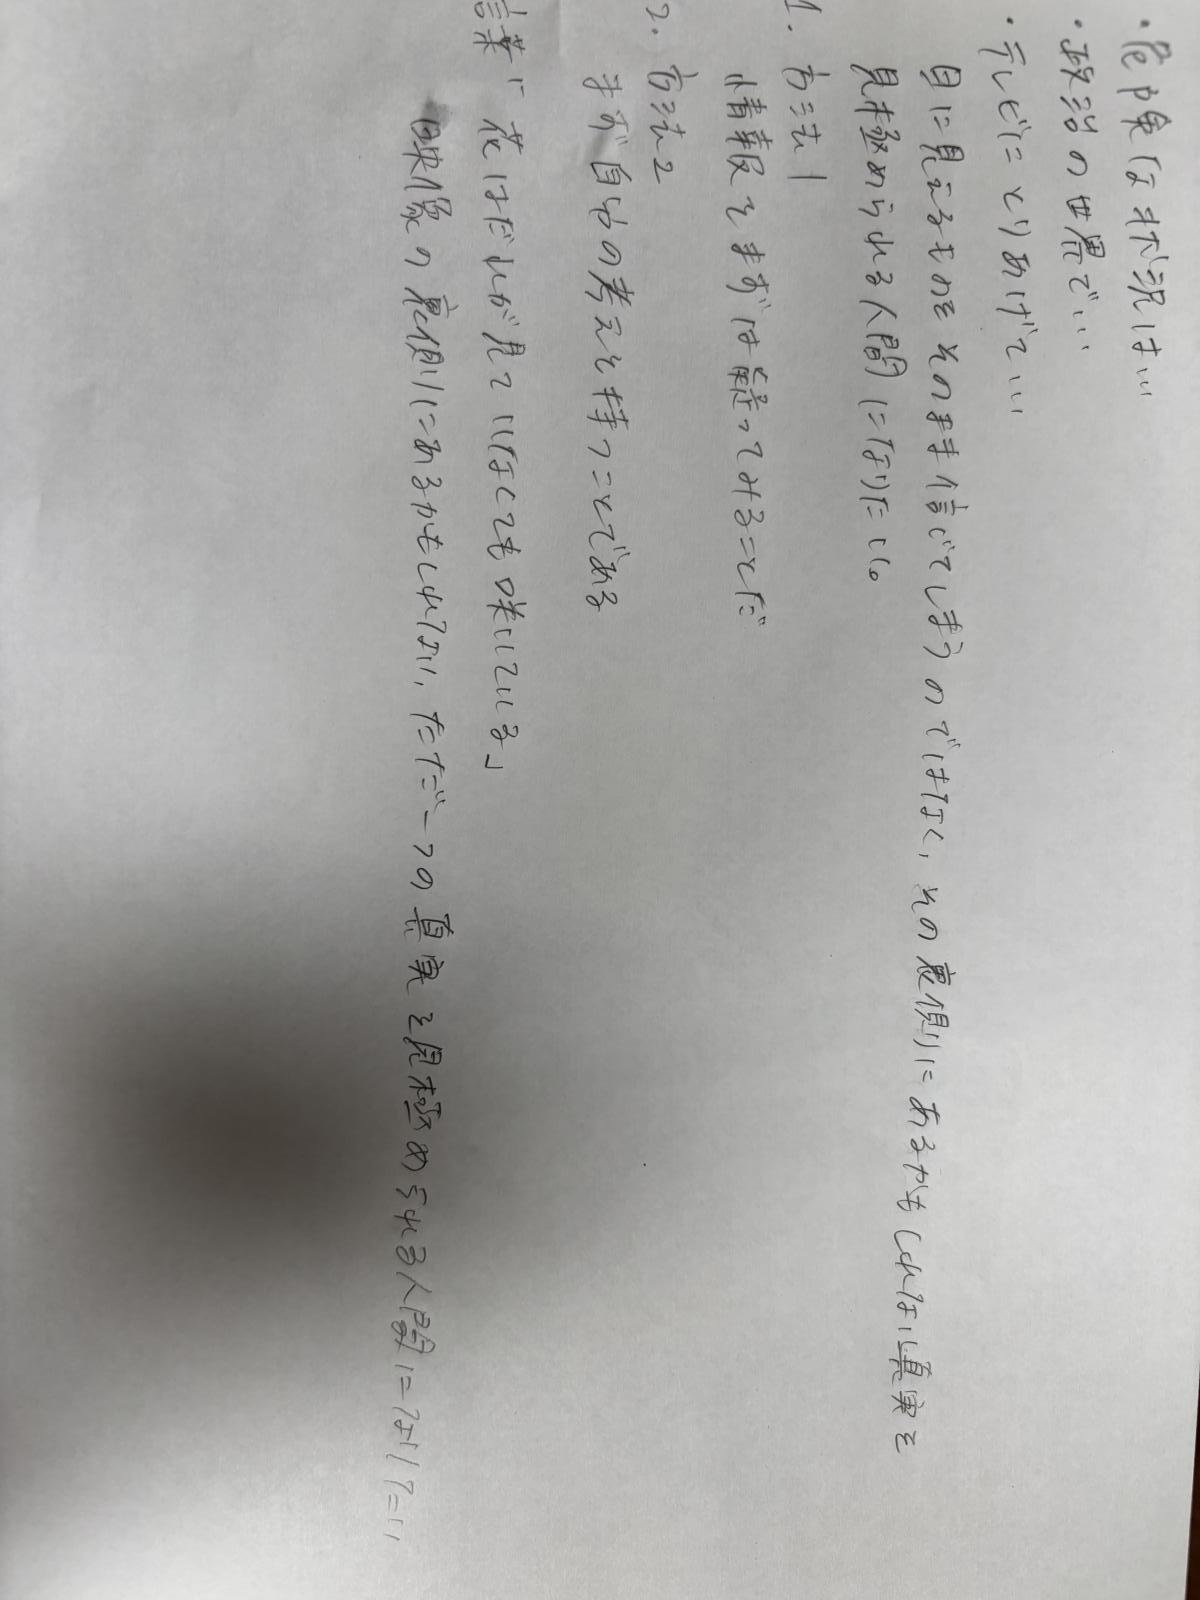 ・危険な状況は…
・政治の世界で…
・テレビにとりあげて…
目に見えるものをそのまま信じてしまうのではなく、その裏側にあるかもしれない真実を
見極められる人間になりたい。
1. 方法1
情報をまずは疑ってみることだ
2. 方法2
まず自分の考えを持つことである
言葉「花はだれが見ていなくても咲いている」
映像の裏側にあるかもしれない、ただ一つの真実を見極められる人間になりたい